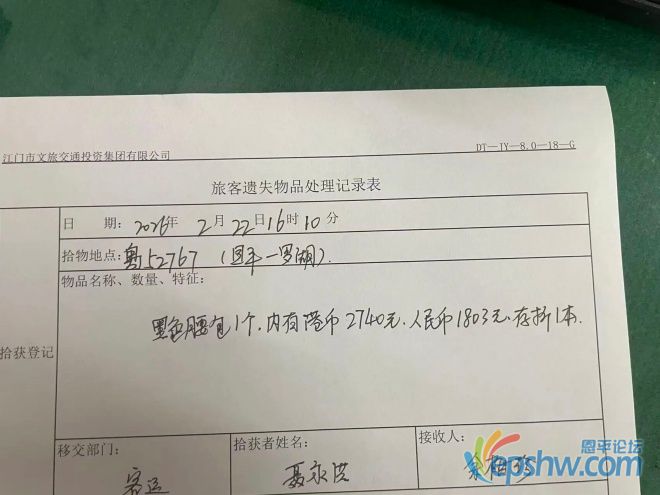 江门市文旅交通投资集团有限公司 DT—JY—8.0—18—G
旅客遗失物品处理记录表
日 期：2026年 2月 22日16时10分
拾物地点：粤J52767（恩平—罗湖）.
物品名称、数量、特征：
黑色腰包1个，内有港币2740元、人民币1803元、存折1本.
拾获登记
移交部门： 拾获者姓名： 接收人：
客运 聂永洪
恩平论坛
epshw.com